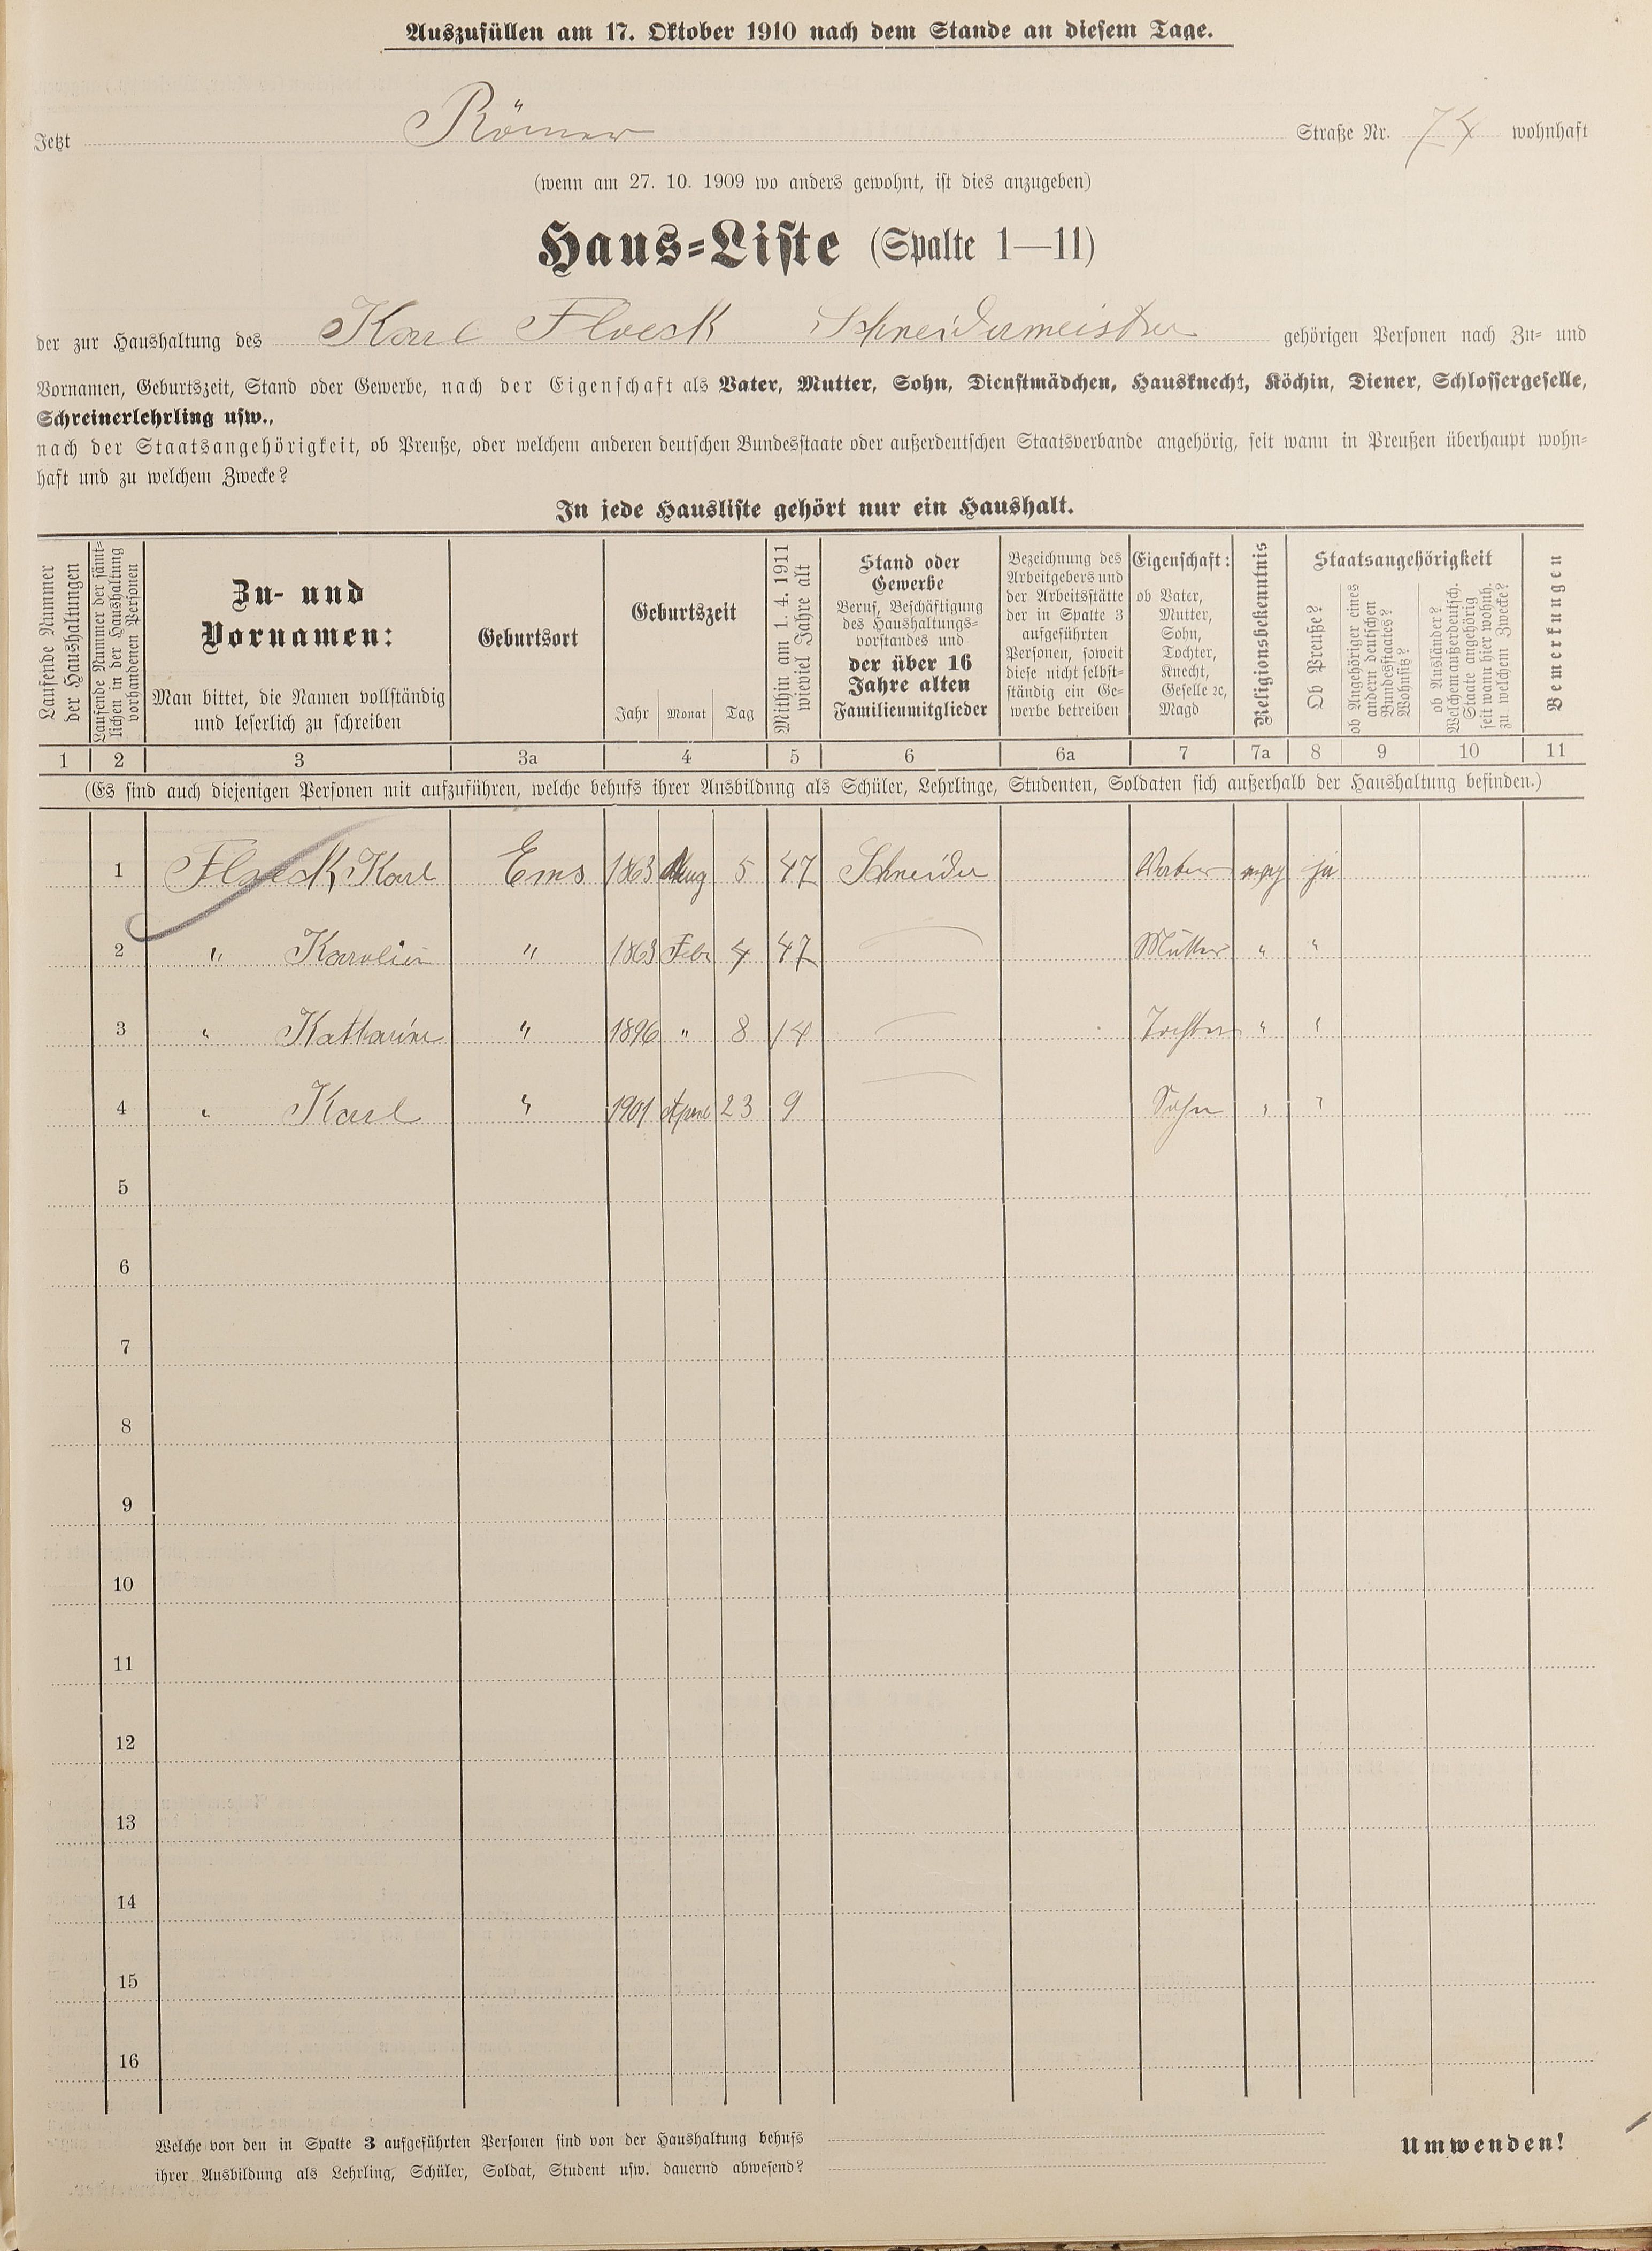 Auszufüllen am 17. Oktober 1910 nach dem Stande an diesem Tage.
Jetzt Römer Straße Nr. 74 wohnhaft
(wenn am 27. 10. 1909 wo anders gewohnt, ist dies anzugeben)
Haus-Liste (Spalte 1—11)
der zur Haushaltung des Karl Floeck Schneidermeister gehörigen Personen nach Zu- und
Vornamen, Geburtszeit, Stand oder Gewerbe, nach der Eigenschaft als Vater, Mutter, Sohn, Dienstmädchen, Hausknecht, Köchin, Diener, Schlossergeselle,
Schreinerlehrling usw.,
nach der Staatsangehörigkeit, ob Preuße, oder welchem anderen deutschen Bundesstaate oder außerdeutschen Staatsverbande angehörig, seit wann in Preußen überhaupt wohn-
haft und zu welchem Zwecke?
In jede Hausliste gehört nur ein Haushalt.
Laufende Nummer
der Haushaltungen
Laufende Nummer der sämt-
lichen in der Haushaltung
vorhandenen Personen
Zu- und
Vornamen:
Man bittet, die Namen vollständig
und leserlich zu schreiben
Geburtsort
Geburtszeit
Jahr Monat Tag
Mithin am 1. 4. 1911
wieviel Jahre alt
Stand oder
Gewerbe
Beruf, Beschäftigung
des Haushaltungs-
vorstandes und
der über 16
Jahre alten
Familienmitglieder
Bezeichnung des
Arbeitgebers und
der Arbeitsstätte
der in Spalte 3
aufgeführten
Personen, soweit
diese nicht selbst-
ständig ein Ge-
werbe betreiben
Eigenschaft:
ob Vater,
Mutter,
Sohn,
Tochter,
Knecht,
Geselle ꝛc,
Magd
Religionsbekenntnis
Staatsangehörigkeit
Ob Preuße?
ob Angehöriger eines
andern deutschen
Bundesstaates?
Wohnsitz?
ob Ausländer?
Welchem außerdeutsch.
Staate angehörig
seit wann hier wohnh.
zu welchem Zwecke?
Bemerkungen
1 2 3 3a 4 5 6 6a 7 7a 8 9 10 11
(Es sind auch diejenigen Personen mit aufzuführen, welche behufs ihrer Ausbildung als Schüler, Lehrlinge, Studenten, Soldaten sich außerhalb der Haushaltung befinden.)
1 Floeck, Karl Ems 1863 Aug 5 47 Schneider Vater ja
2 " Karolin " 1863 Febr 4 47 Mutter " "
3 " Katharine " 1896 " 8 14 Tochter " "
4 " Karl " 1901 April 23 9 Sohn " "
5
6
7
8
9
10
11
12
13
14
15
16
Welche von den in Spalte 3 aufgeführten Personen sind von der Haushaltung behufs
ihrer Ausbildung als Lehrling, Schüler, Soldat, Student usw. dauernd abwesend?
Umwenden!